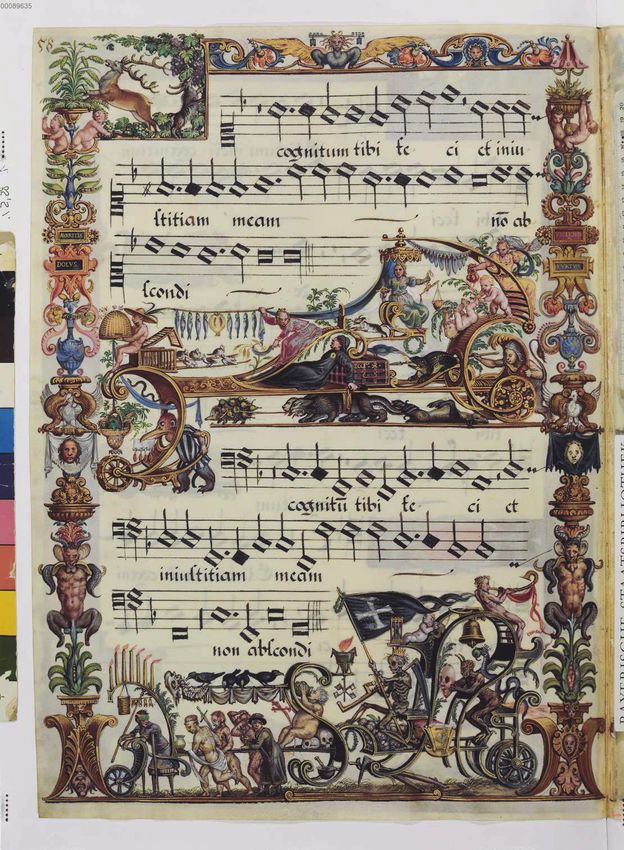 00089635
58
cognitum tibi fe ci et iniu
stitiam meam nō ab
scondi
DOLVS
cognitū tibi fe ci et
iniustitiam meam
non abscondi
BAYERISCHE STAATSBIBLIOTHEK